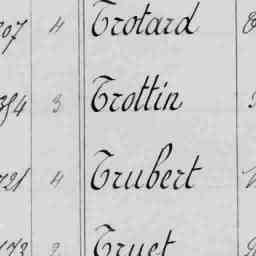 4 Trotard
3 Trottin
4 Trubert
2 Truet